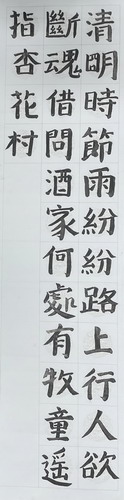 清明時節雨紛紛路上行人欲
斷魂借問酒家何處有牧童遥
指杏花村